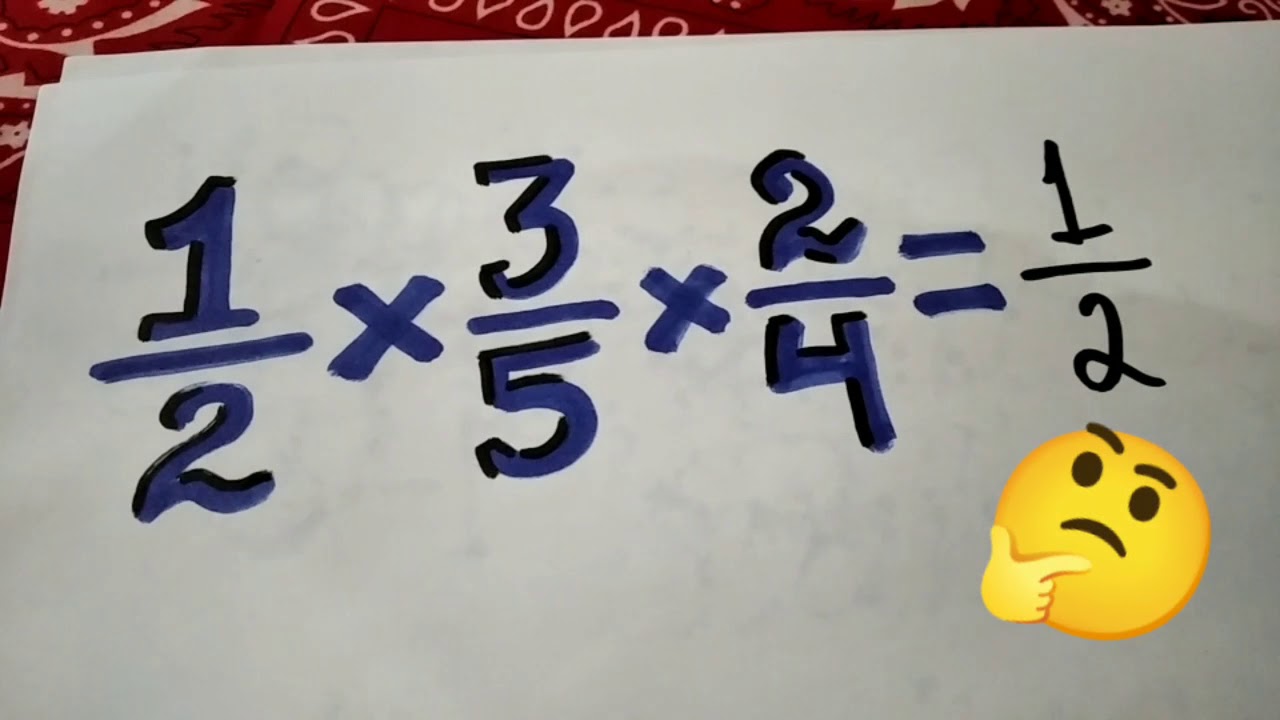 1/2 × 3/5 × 2/4 = 1/2